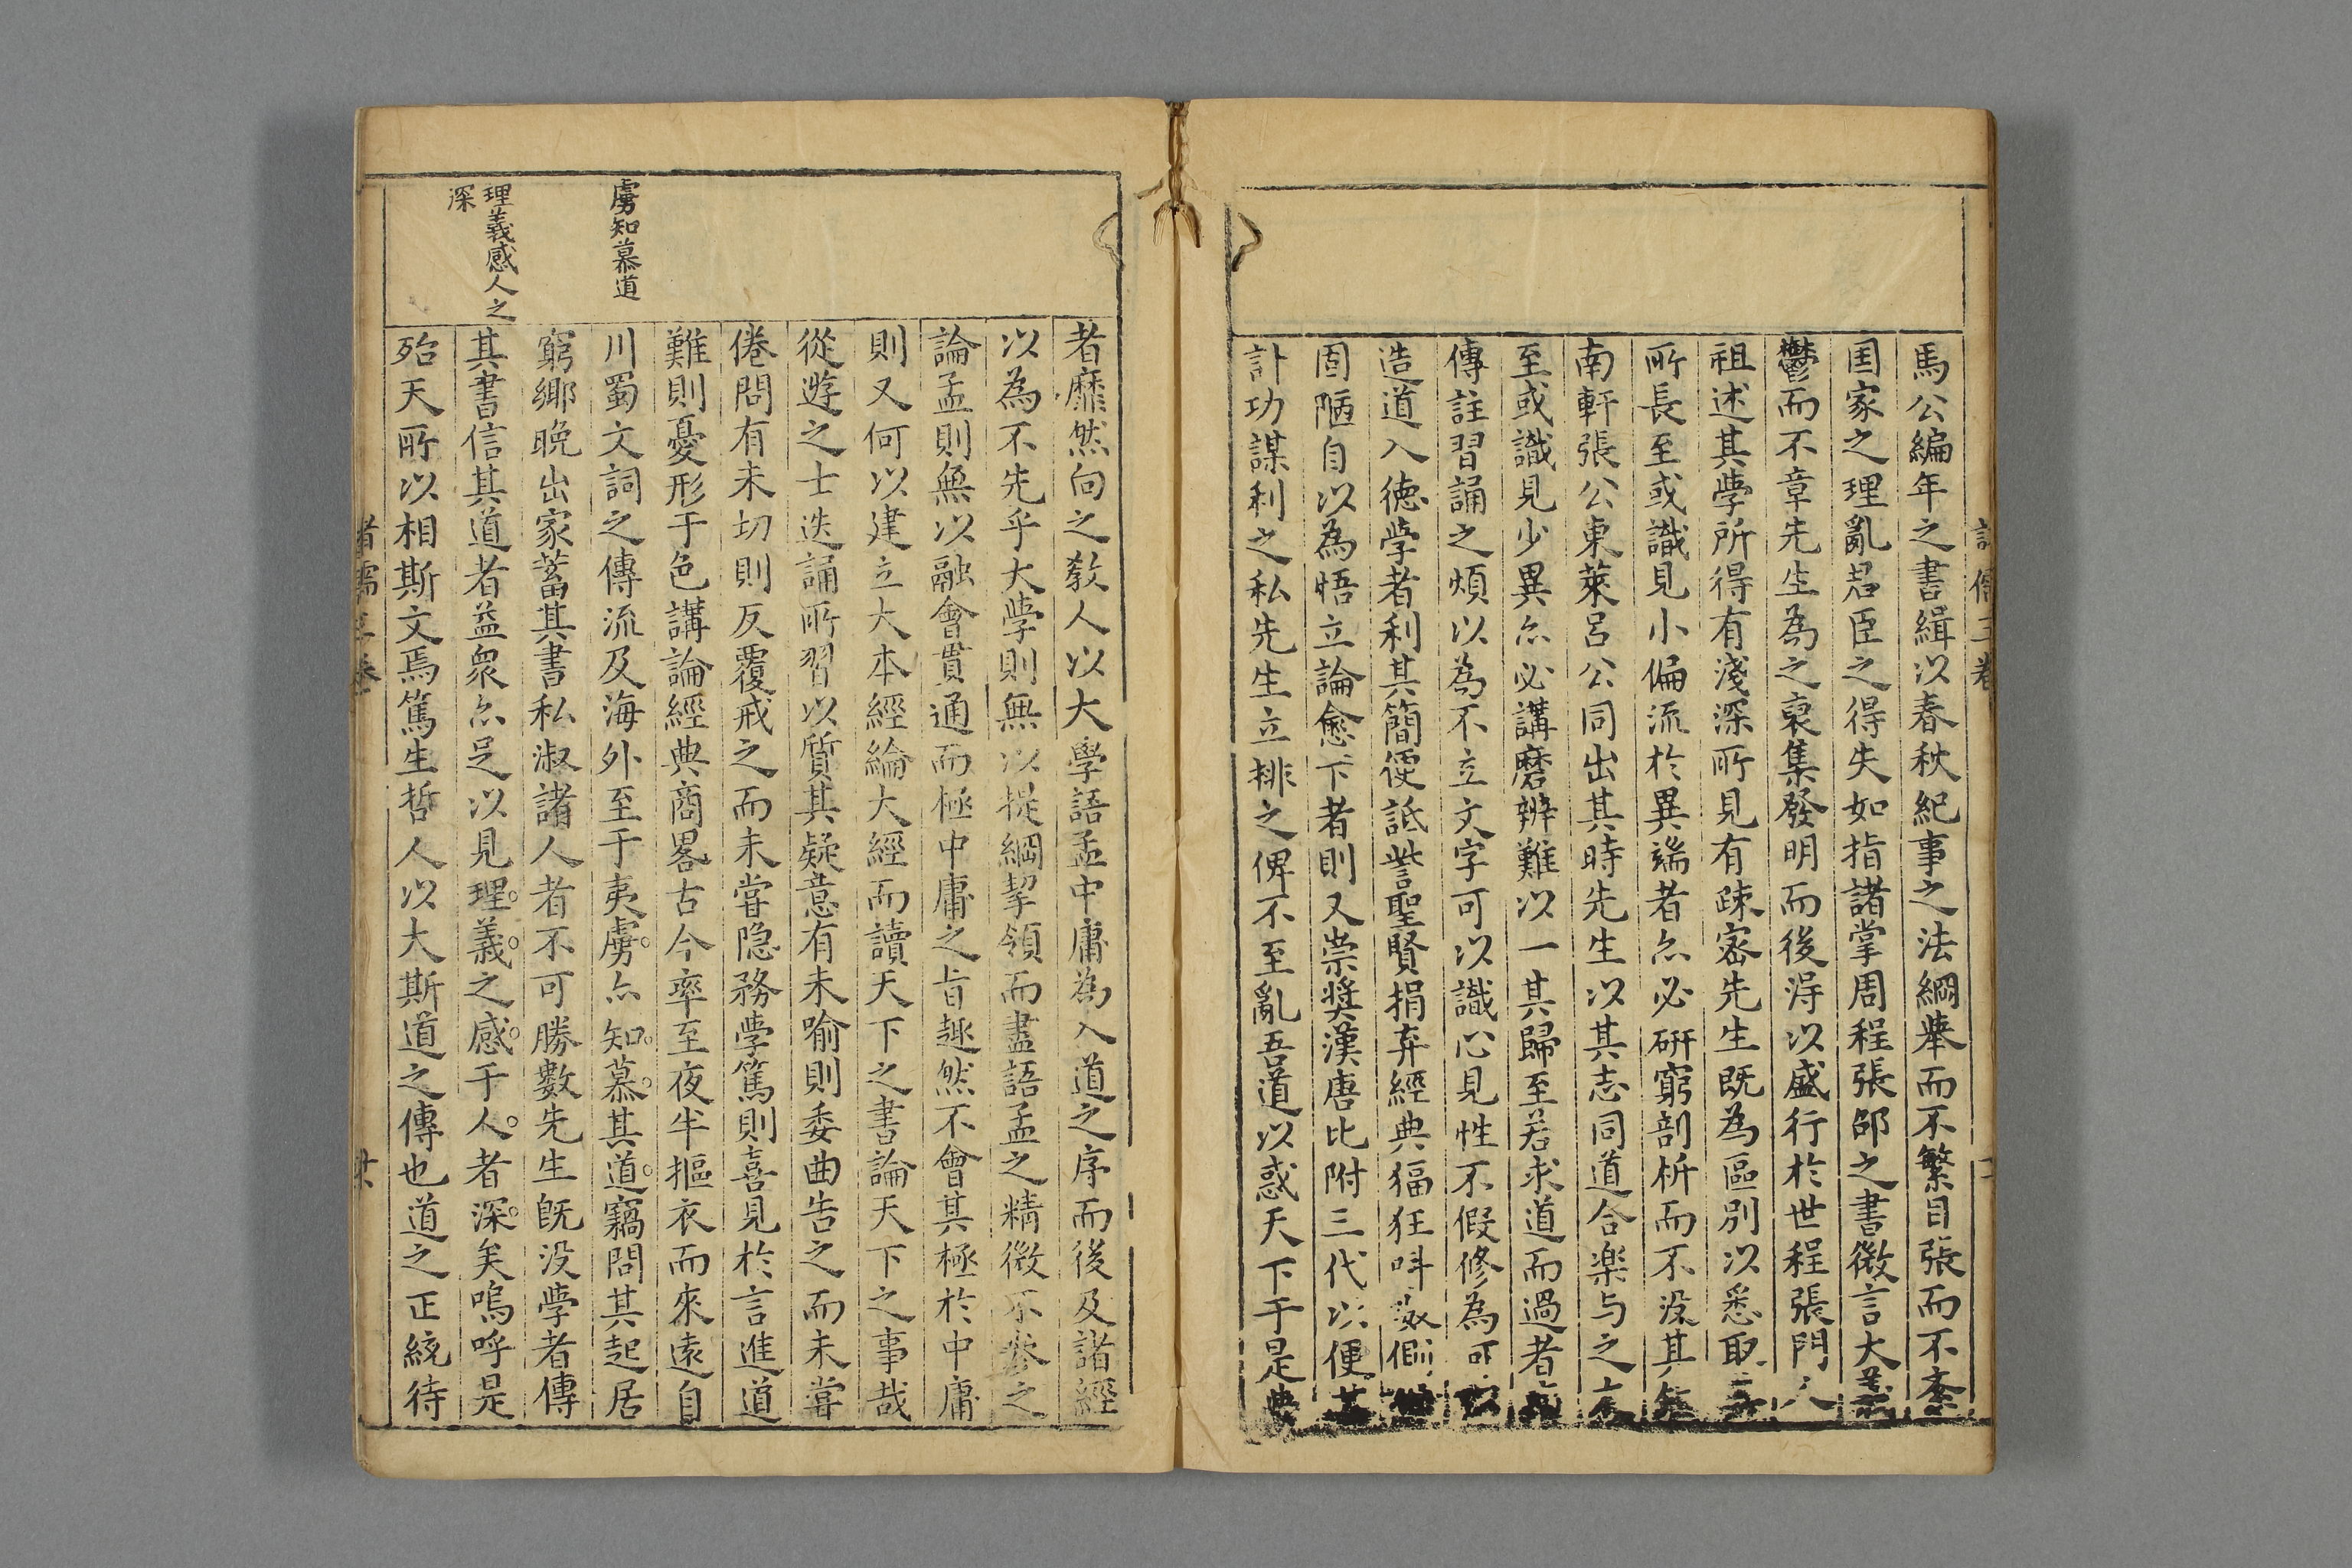 馬公編年之書緝以春秋紀事之法綱舉而不繁目張而不紊
国家之理亂君臣之得失如指諸掌周程張邵之書微言大義
鬱而不章先生為之裒集發明而後淂以盛行於世程張門人
祖述其學所得有淺深所見有疎宻先生既為區別以悉取
所長至或識見小偏流於異端者亦必研窮剖析而不没其
南軒張公東萊呂公同出其時先生以其志同道合楽与之
至或識見少異亦必講磨辨難以一其歸至若求道而過者
傳註習誦之煩以為不立文字可以識心見性不假修為可以
造道入德學者利其簡便詆訾聖賢捐弃經典猖狂叫
固陋自以為悟立論愈下者則又崇奨漢唐比附三代以便其
計功謀利之私先生立排之俾不至亂吾道以惑天下于是學
者靡然向之教人以大學語孟中庸為入道之序而後及諸經
以為不先乎大學則無以提綱挈領而盡語孟之精微不參之
論孟則無以融會貫通而極中庸之旨趣然不會其極於中庸
則又何以建立大本經綸大經而讀天下之書論天下之事哉
從遊之士迭誦所習以質其疑意有未喻則委曲告之而未嘗
倦問有未切則反覆戒之而未嘗隐務學篤則喜見於言進道
難則憂形于色講論經典商畧古今率至夜半摳衣而來遠自
川蜀文詞之傳流及海外至于夷虜亦知慕其道竊問其起居
窮鄉晚出家蓄其書私淑諸人者不可勝數先生旣没學者傳
其書信其道者益衆亦足以見理義之感于人者深矣嗚呼是
殆天所以相斯文焉篤生哲人以大斯道之傳也道之正統待
虜知慕道
理義感人之
深